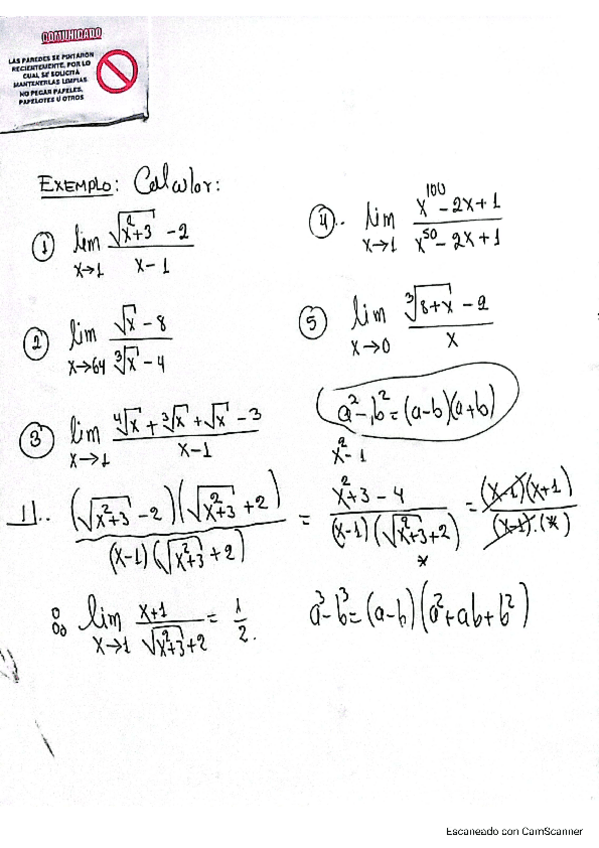 COMUNICADO
LAS PAREDES SE PINTARON
RECIENTEMENTE, POR LO
CUAL SE SOLICITA
MANTENERLAS LIMPIAS.
NO PEGAR PAPELES,
PAPELOTES U OTROS
EXEMPLO: Calcular:
① lim x→1 (√(x²+3) - 2)/(x-1)
② lim x→64 (√x - 8)/(∛x - 4)
③ lim x→1 (∜x + ∛x + √x - 3)/(x-1)
④.. lim x→1 (x¹⁰⁰ - 2x + 1)/(x⁵⁰ - 2x + 1)
⑤ lim x→0 (∛(8+x) - 2)/x
a² - b² = (a-b)(a+b)
x² - 1
1).. (√(x²+3) - 2)(√(x²+3) + 2)/((x-1)(√(x²+3) + 2)) = (x²+3-4)/((x-1)(√(x²+3)+2)) = (x-1)(x+1)/((x-1).(*))
*
∴ lim x→1 (x+1)/(√(x²+3)+2) = 1/2.
a³ - b³ = (a-b)(a² + ab + b²)
Escaneado con CamScanner